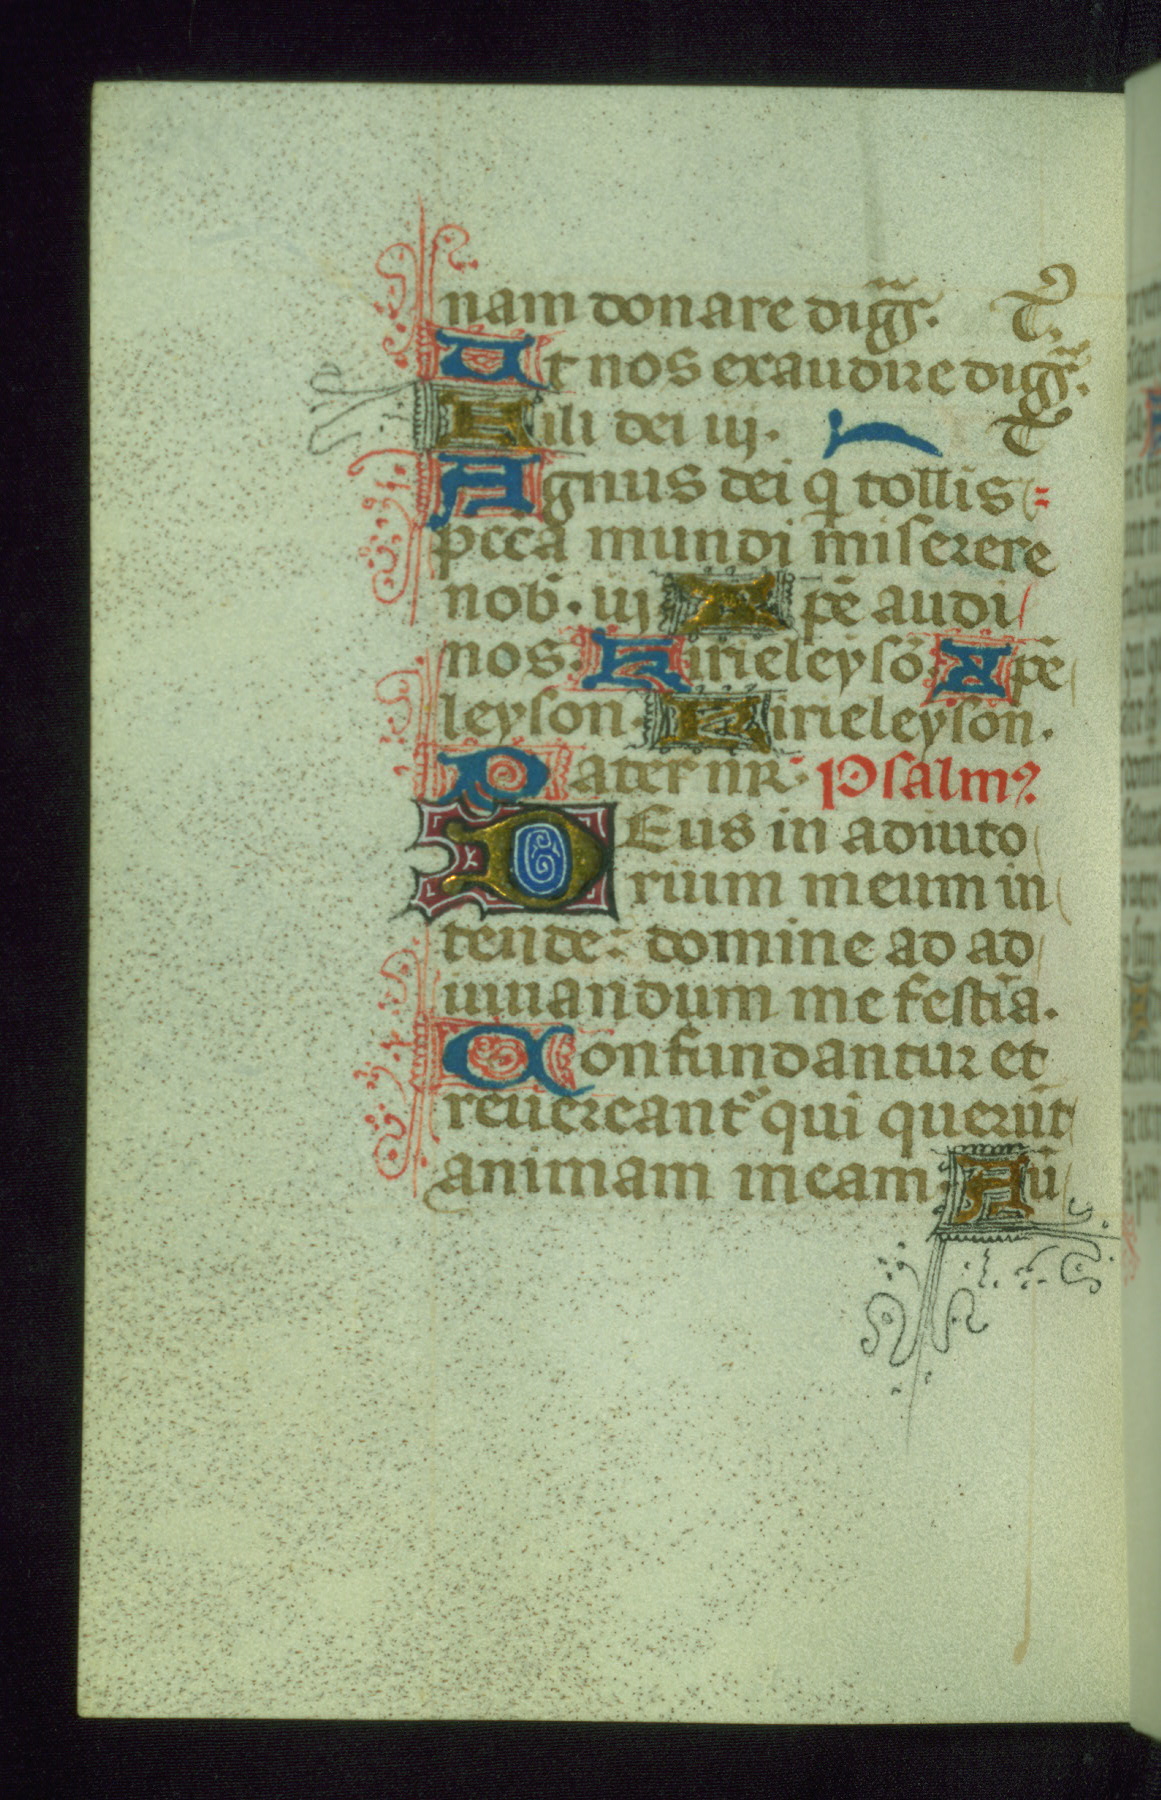 nam donare dig̃. T.
Ut nos exaudire dig̃. T
Fili dei iij.
Agnus dei q̇ tollis
pcca mundi miserere
nob̄. iij Xpē audi
nos. Kirieleysō. Xpē
leyson. Kirieleyson.
Pater nr̄. Psalmꝰ
DEus in adiuto
rium meum in
tende: domine ad ad
iuuandum me festīa.
Confundantur et
reuereant᷑ qui querūt
animam meam Aū